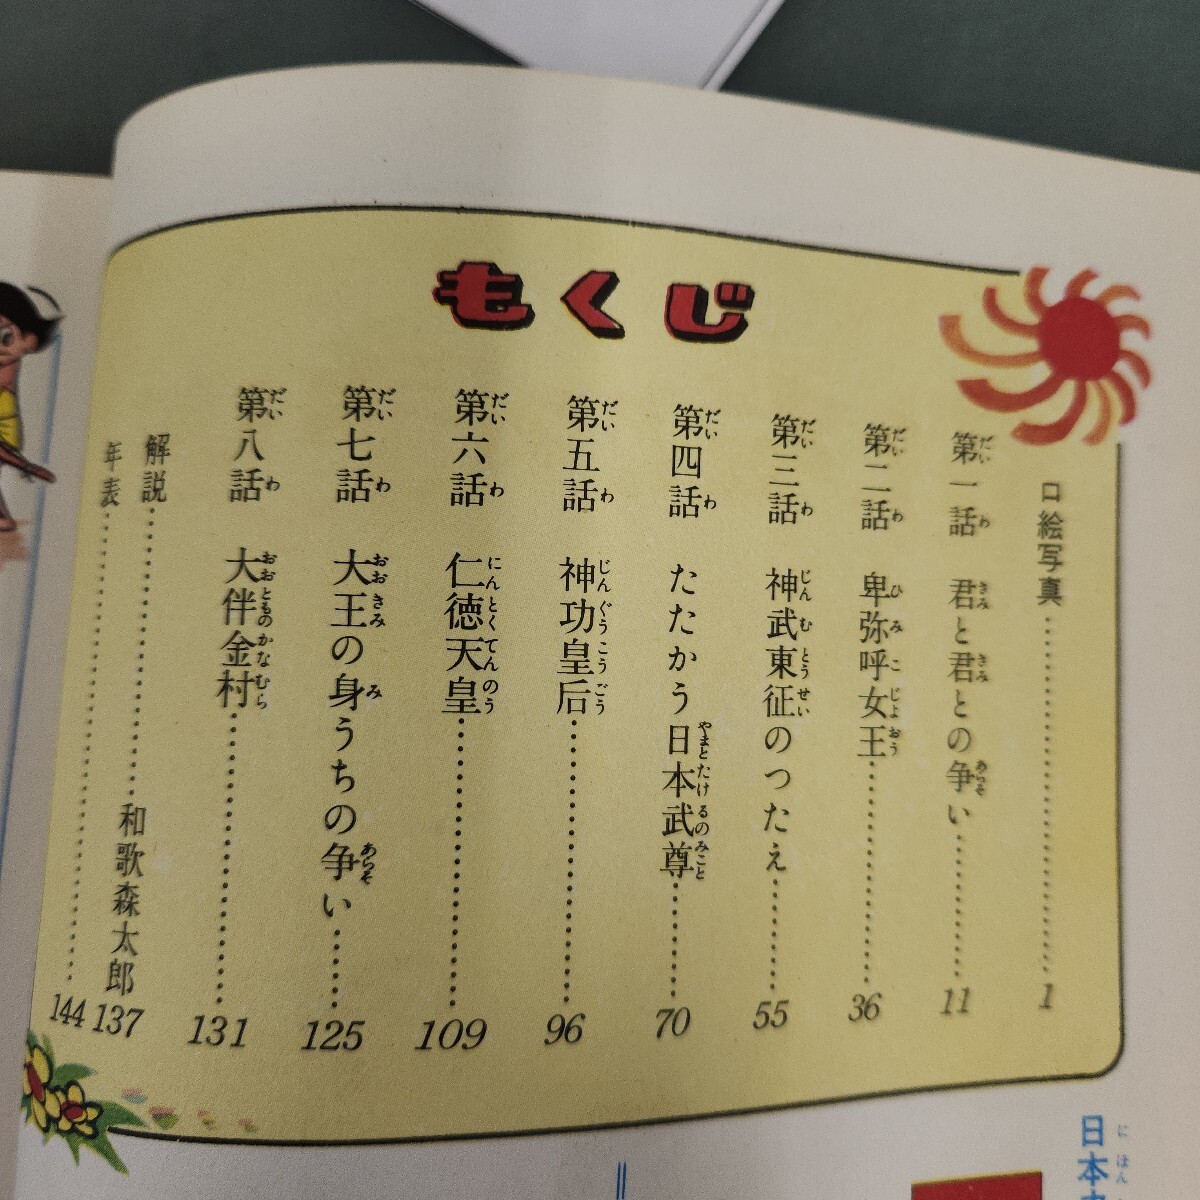 もくじ
口絵写真……………………1
第一話 君と君との争い…………11
第二話 卑弥呼女王……………36
第三話 神武東征のつたえ………55
第四話 たたかう日本武尊………70
第五話 神功皇后………………96
第六話 仁徳天皇………………109
第七話 大王の身うちの争い……125
第八話 大伴金村………………131
解説……………………和歌森太郎 137
年表……………………………144
日本